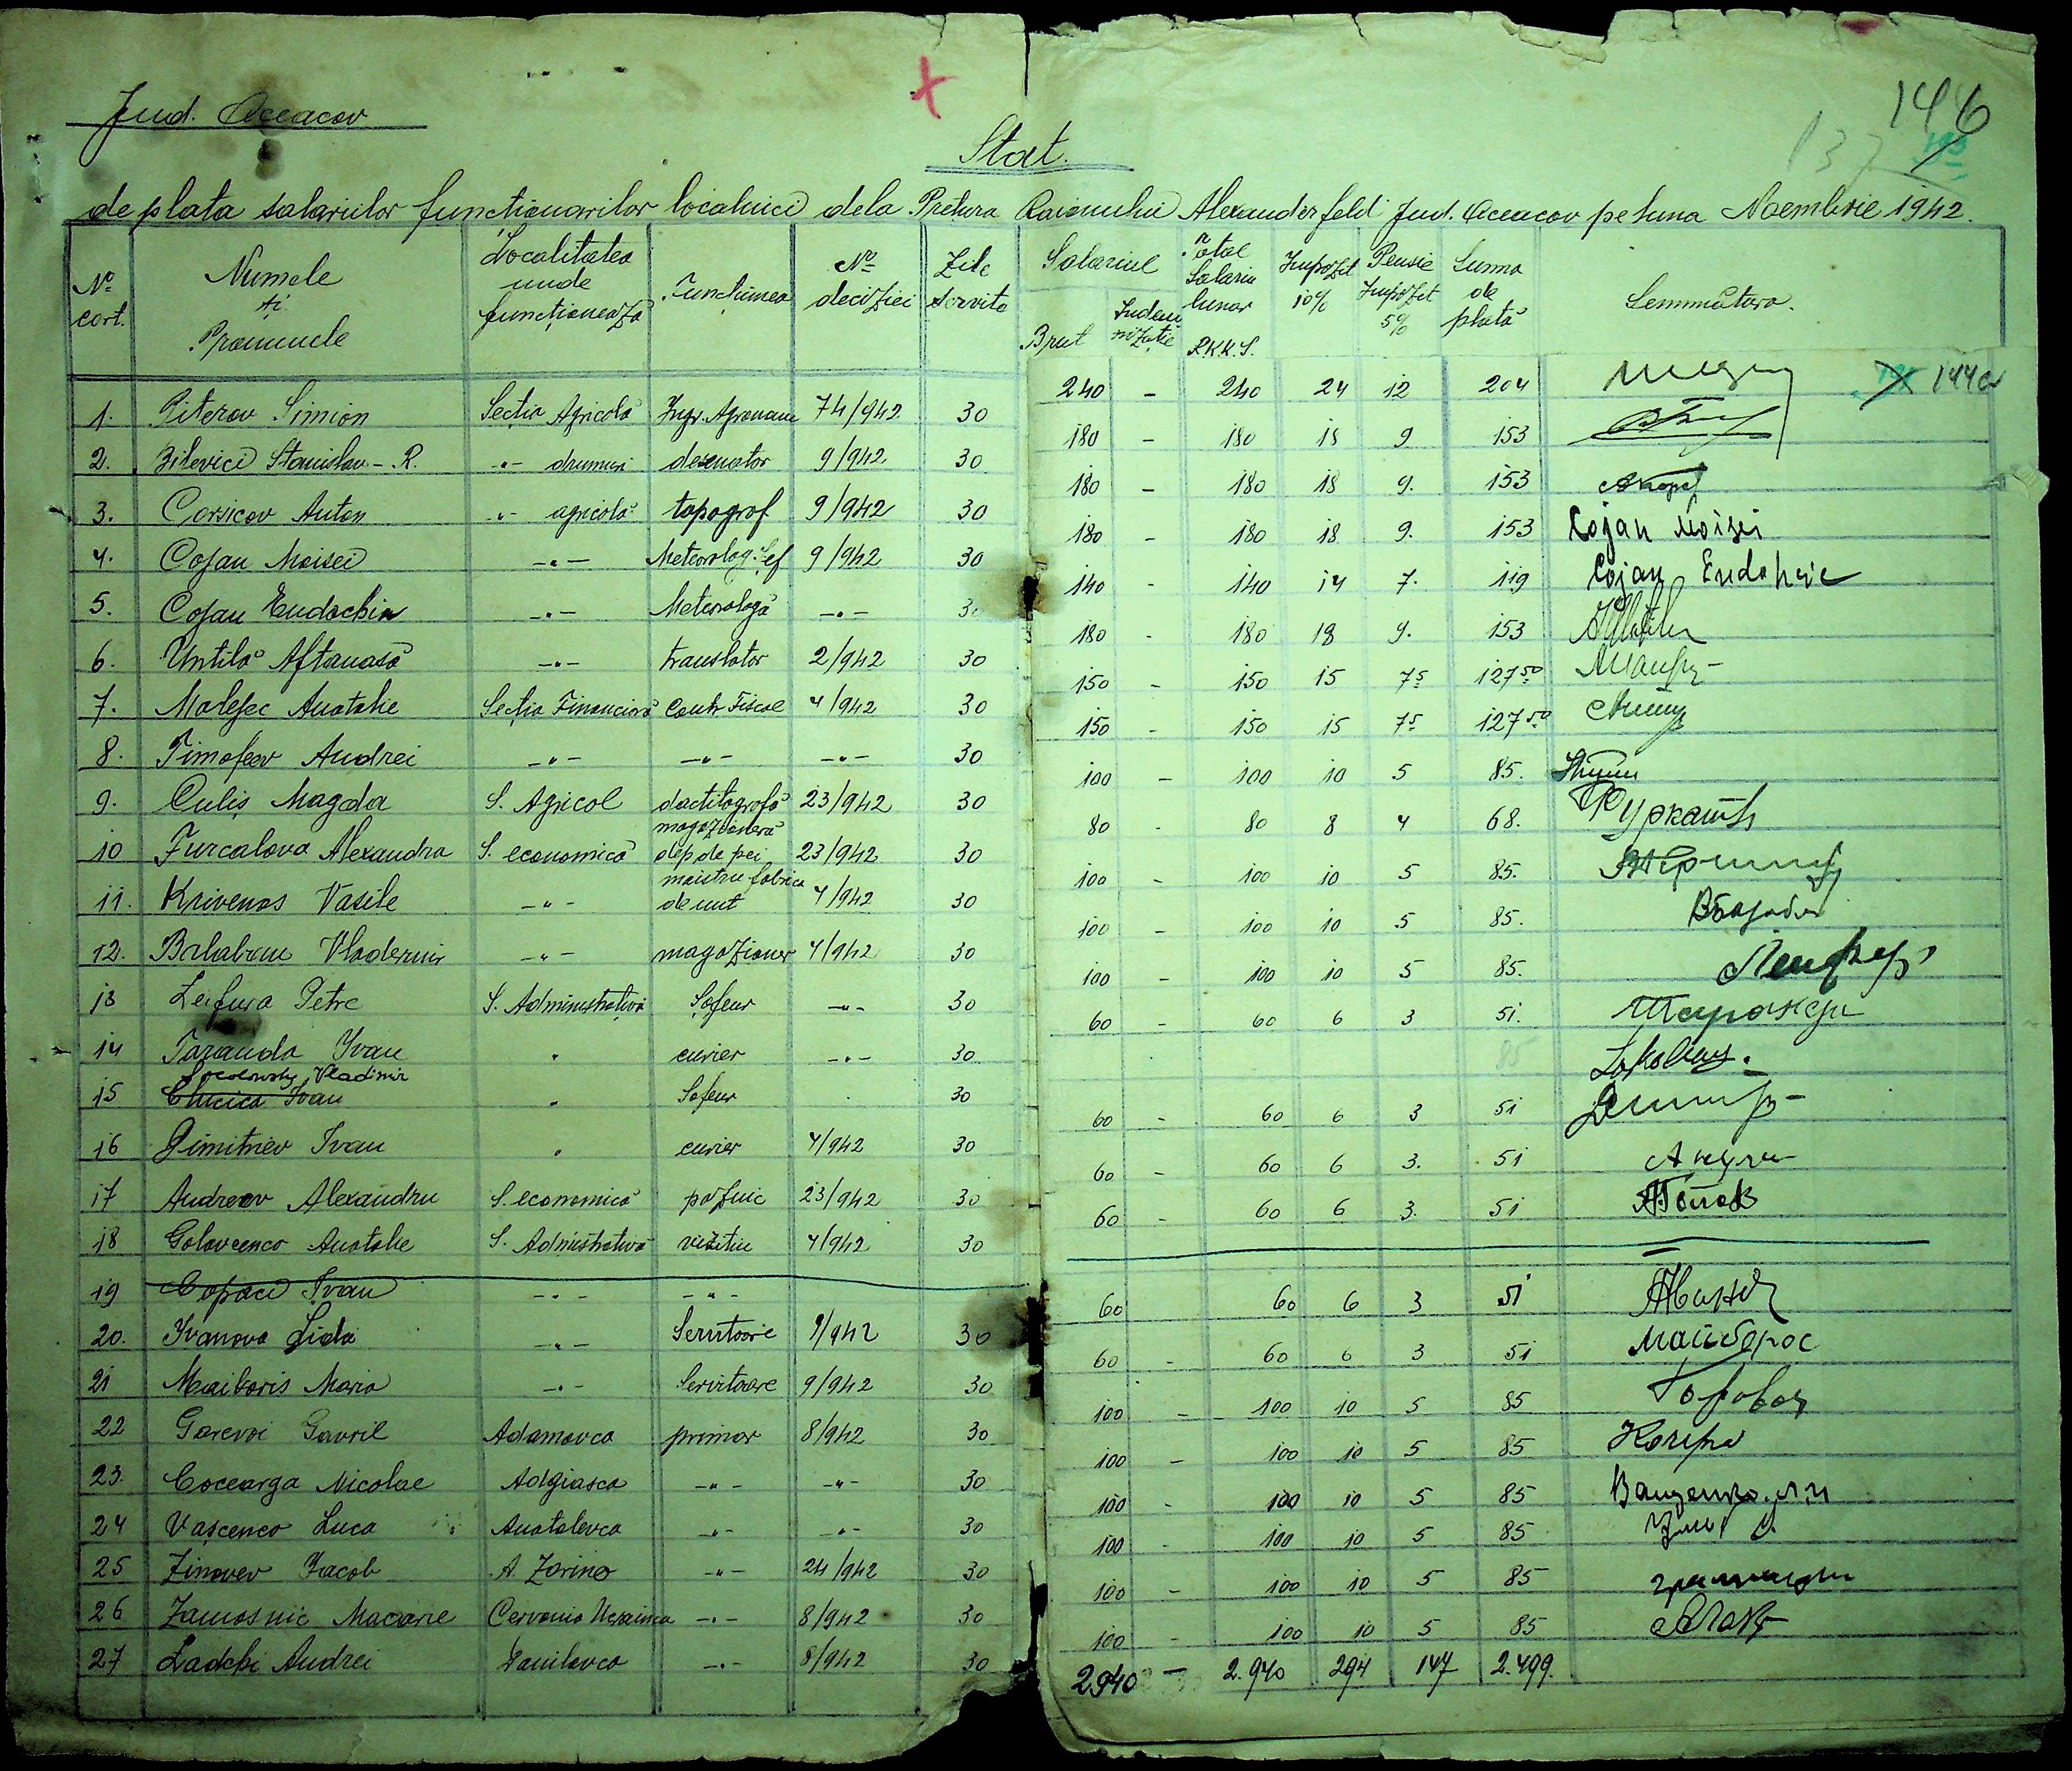 146
137
Jud. Oceacov
Stat.
de plata salariilor functionarilor localnici dela Pretura Raionului Alexanderfeld Jud. Oceacov pe luna Noembrie 1942.
No crt. Numele și Pronumele Localitatea unde funcționează Funcțiunea No deciziei Zile servite Salariul Brut Indemnizație Total Salariu lunar R.K.K.S. Impozit 10% Pensie Impozit 5% Suma de plată Semnătura.
144
1. Piterov Simion Secția Agricolă Ingr. Agronom 74/942 30 240 - 240 24 12 204
2. Bilevici Stanislav - R. -"- drumuri desenator 9/942 30 180 - 180 18 9 153
3. Corsicov Anton -"- agricolă topograf 9/942 30 180 - 180 18 9. 153
4. Cojan Moisei -"- Meteorolog Șef 9/942 30 180 - 180 18 9. 153 Cojan Moisei
5. Cojan Eudochia -"- Meteorologă -"- 30 140 - 140 14 7. 119 Cojan Eudohie
6. Untilă Aftanasă -"- translator 2/942 30 180 - 180 18 9. 153
7. Malejec Anatolie Secția Financiară Contr Fiscal 4/942 30 150 - 150 15 7 5 127 50
8. Timofeev Andrei -"- -"- -"- 30 150 - 150 15 7 5 127 50
9. Culiș Magda S. Agricol dactilografă 23/942 30 100 - 100 10 5 85.
10 Furcalova Alexandra S. economică magazioneră dep de pei 23/942 30 80 - 80 8 4 68.
11. Krivenos Vasile -"- maistru fabrica de unt 4/942 30 100 - 100 10 5 85.
12. Balaban Vlademir -"- magazioner 4/942 30 100 - 100 10 5 85.
13 Leifura Petre S. Administrativă Șofeur -"- 30 100 - 100 10 5 85.
14 Taranda Ivan " curier -"- 30 60 - 60 6 3 51.
Socolowsky Vladimir
15 Ivan " Sofeur 30 85
16 Dimitriev Ivan " curier 4/942 30 60 - 60 6 3 51
17 Andreev Alexandru S. economică paznic 23/942 30 60 - 60 6 3. 51
18 Golovcenco Anatolie S. Administrativă vizitiu 4/942 30 60 - 60 6 3. 51
19 Copaci Ivan -"- -"-
20. Ivanova Lida -"- Servitoare 9/942 30 60 60 6 3 51
21 Maiboris Maria -"- Servitoare 9/942 30 60 - 60 6 3 51 Майборос
22 Garevoi Gavril Adamovca primar 8/942 30 100 - 100 10 5 85
23. Cocearga Nicolae Adgiasca -"- -"- 30 100 - 100 10 5 85
24 Vașcenco Luca Anatolevca -"- -"- 30 100 - 100 10 5 85 Ващенко
25 Zinovev Iacob A. Zarino -"- 24/942 30 100 - 100 10 5 85
26 Zamosnic Macarie Cervonia Ucrainca -"- 8/942 30 100 - 100 10 5 85
27 Ladchi Andrei Danilovca -"- 8/942 30 100 - 100 10 5 85
2940 - 2.940 294 147 2.499.